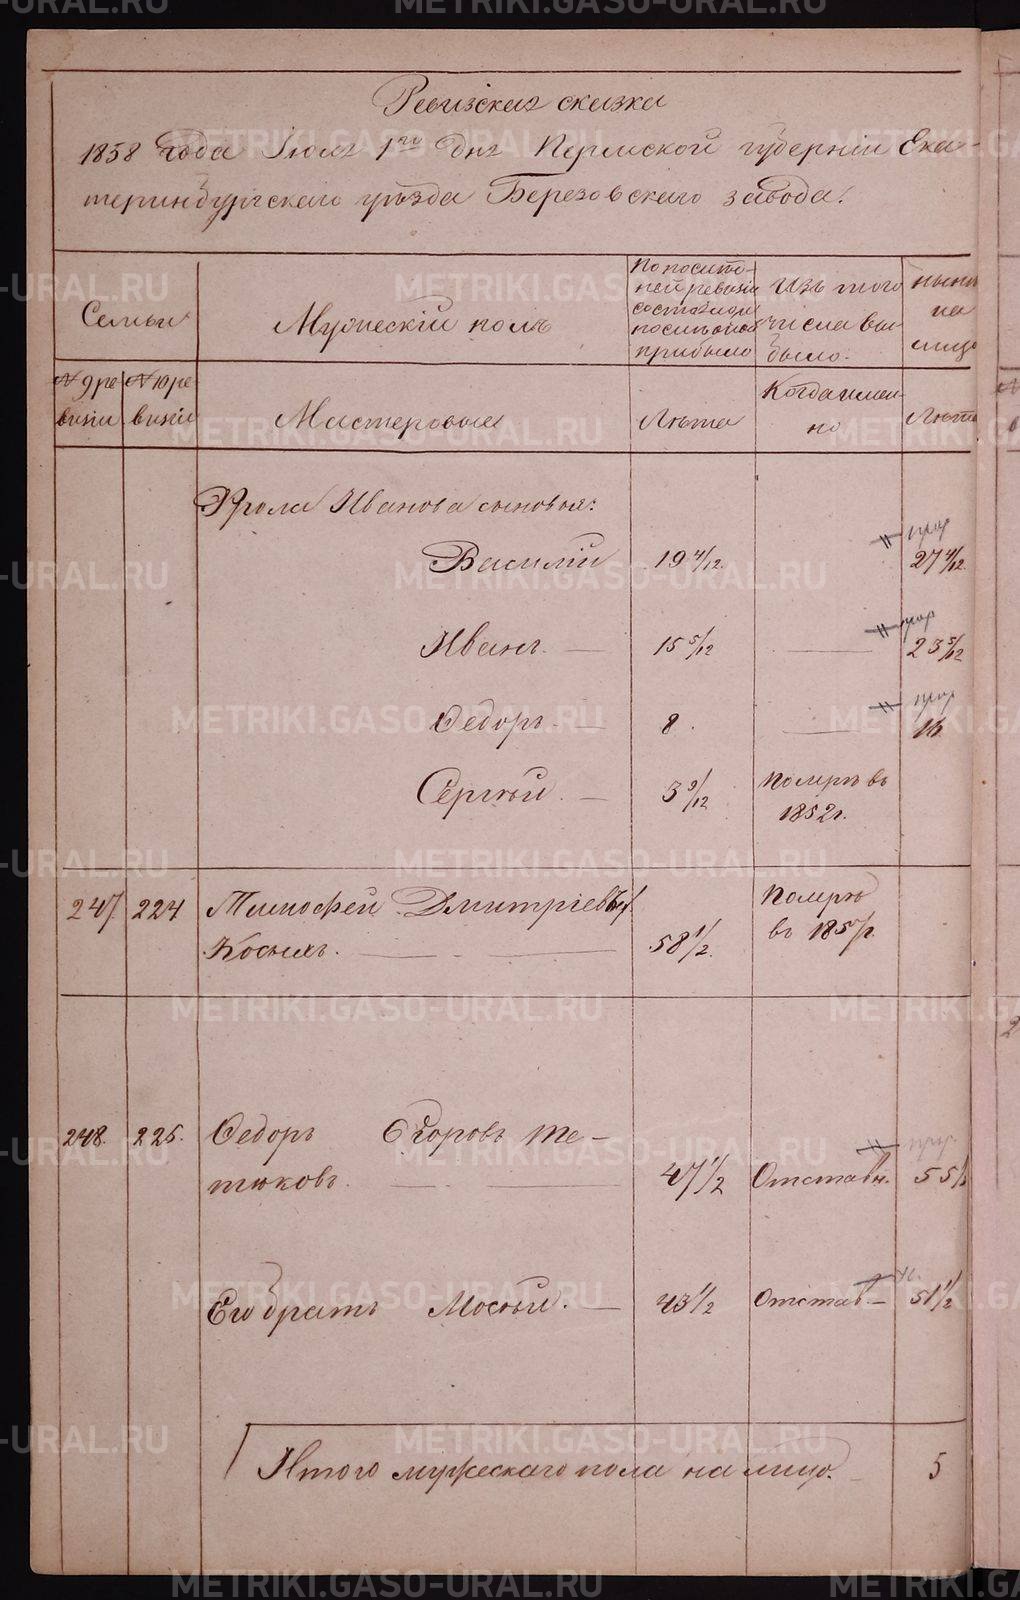 Ревизская сказка
1858 года Іюля 1го дня Пермской губерніи Ека-
теринбургскаго уѣзда Березовскаго завода.
Семьи
Мужескій полъ
По послѣд-
ней ревизіи
состояло и
послѣ оной
прибыло
Изъ того
числа вы-
было.
Нынѣ
на
лицо
№ 9 ре
визіи
№ 10 ре
визіи
Мастеровые
Лѣта
Когда имен-
но
Лѣта
Фрола Иванова сыновья:
Василій 19 4/12. 27 4/12.
Иванъ. — 15 5/12 — 23 5/12
Ѳедоръ. — 8. — 16
Сергѣй. — 3 9/12 Померъ въ
1852 г.
247. 224 Тимофей Дмитріевъ
Косыхъ. — 58 1/2. Померъ
въ 1857 г.
248. 225. Ѳедоръ Егоровъ Те-
тюковъ. — 47 1/2 Отставн. 55 1/2
Его братъ Мосѣй. — 43 1/2 Отстав— 51 1/2
Итого мужескаго пола на лицо. 5
METRIKI.GASO-URAL.RU